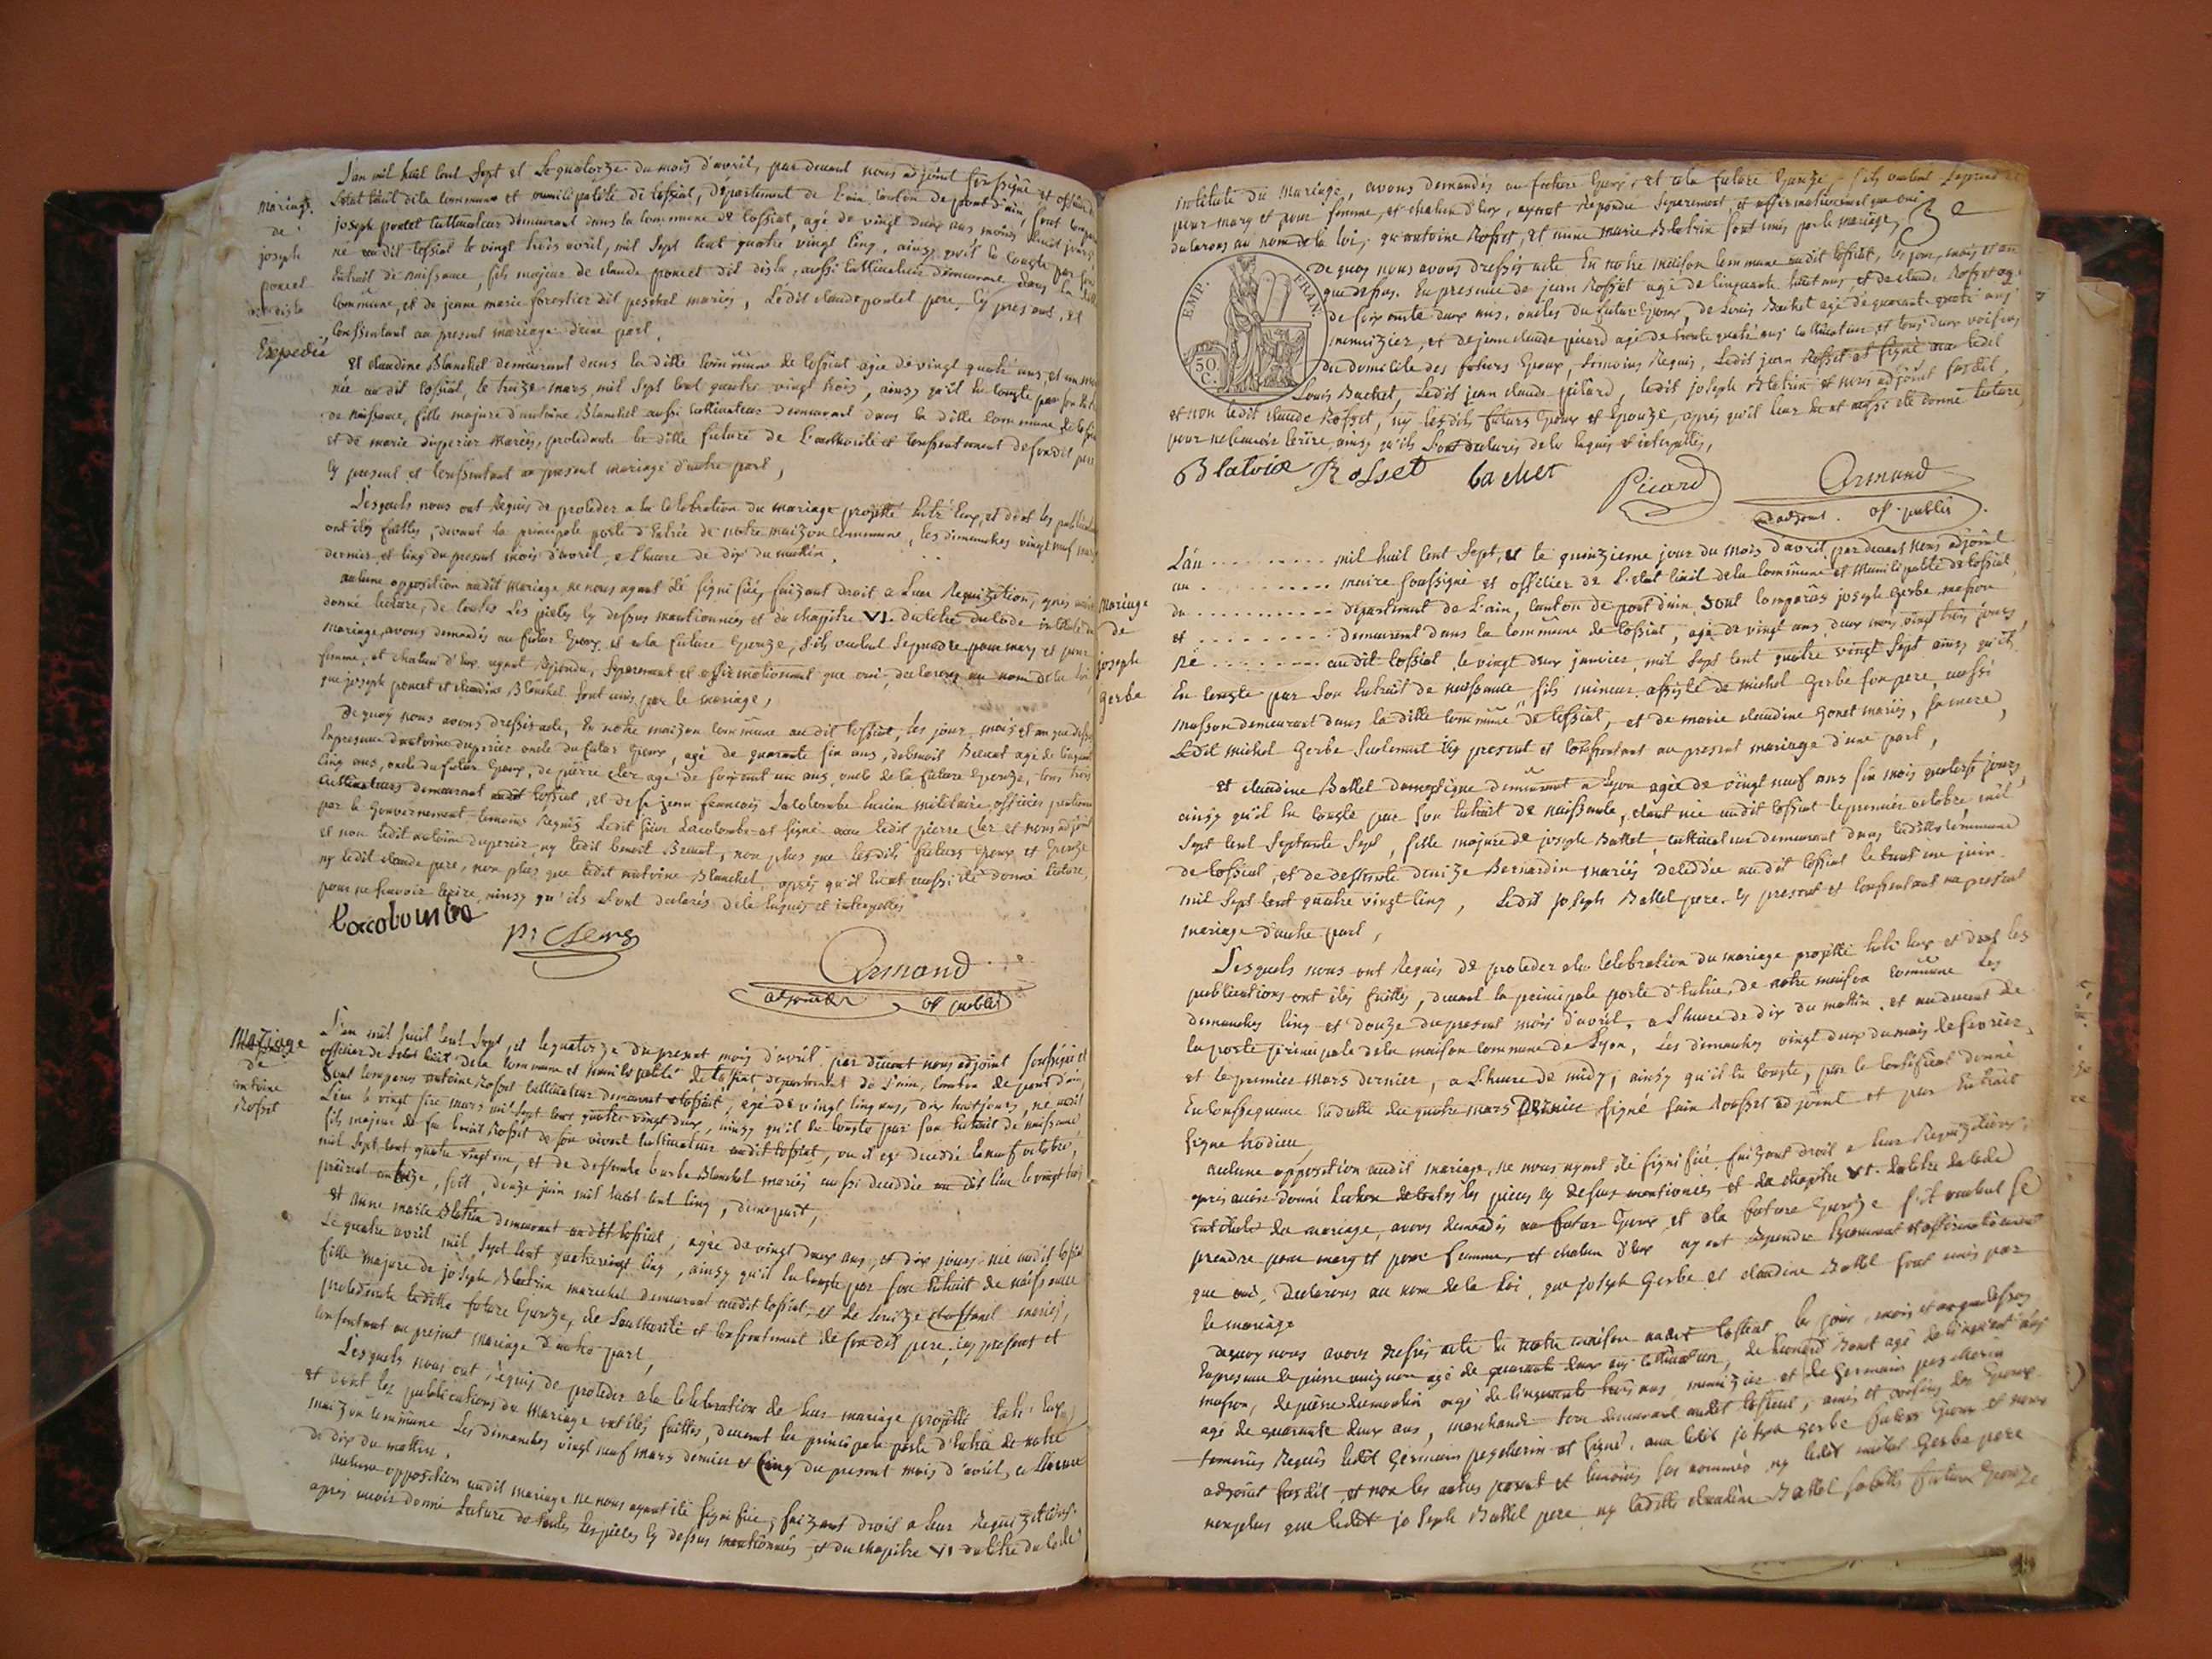 L'an mil huit cent sept et le quatorze du mois d'avril, par devant nous adjoint soussigné et officier de
l'etat civil de la commune et municipalité de cossiat, département de l'ain canton de pont d'ain, sont comparus
mariage
de
joseph
poncet
dit disla
Expedié
joseph poncet cultivateur demeurant dans la commune de cossiat, agé de vingt deux ans moins huit jours,
né au dit cossiat le vingt trois avril, mil sept cent quatre vingt cinq, ainsy qu'il le conste par son
Extrait de naissance, fils majeur de claude poncet dit disla, aussi cultivateur demeurant dans la ditte
commune, et de jenne marie forestier dit peschet mariés, Ledit claude poncet pere, cy present, et
conssentant au present mariage d'une part,
et claudine Blanchet demeurant dans la ditte commune de cossiat agée de vingt quatre ans, et un mois
née au dit cossiat, le treize mars mil sept cent quatre vingt trois, ainsy qu'il en conste par son extrait
de naissance, fille majeure d'antoine Blanchet aussi cultivateur demeurant dans la ditte commune de cossiat
et de marie duperier mariés, procédante la ditte future de L'authorité et conssentement de son dit pere
cy present et conssentant au present mariage d'autre part,
Lesquels nous ont Requis de proceder a la celebration du mariage projetté entr'eux, et dont les publications
ont étés faittes, devant la principale porte d'entrée de notre maizon commune, les dimanches vingt neuf mars
dernier et cinq du present mois d'avril, a L'heure de dix du mattin.
aucune opposition audit mariage ne nous ayant été signifiée, faizant droit a leur Requizition, après avoir
donné lecture, de toutes les pieces cy dessus mentionnées et du chapitre VI. du titre du code intitulé du
mariage, avons demandés au futur Epoux et a la future Epouze, s'ils veulent se prendre pour mary et pour
femme, et chacun d'eux ayant Repondu, separement et affirmativement que oui, declarons au nom de la loi,
que joseph poncet et claudine Blanchet sont unis par le mariage,
De quoy nous avons dressés acte, en notre maizon commune audit cossiat, les jour, mois et an que dessus
En presence d'antoine duperier oncle du futur Epoux, agé de quarante six ans, de benoit Brevet agé de cinquante
cinq ans, oncle du futur Epoux, de pierre clerc agé de soixante un ans oncle de la future Epouze, tous trois
cultivateurs demeurant audit cossiat, et de sr jean francois Lacolombe ancien militaire officier pensionné
par le Gouvernement temoins Requis Ledit sieur Lacolombe at signé avec ledit pierre clerc et nous adjoint
et non ledit antoine duperier, ny ledit benoit Brevet, non plus que lesdits futurs Epoux et Epouze
ny ledit claude pere, non plus que ledit antoine Blanchet, après qu'il en eut aussi été donné lecture,
pour ne sçavoir écrire, ainsy qu'ils l'ont declarés de ce enquis et interpellés
Laccolombe
pr Clerc
Armand
adjoint
of public
Mariage
de
antoine
Rosset
L'an mil huit cent sept, et le quatorze du present mois d'avril par devant nous adjoint soussigné et
officier de l'etat civil de la commune et municipalité de cossiat departement de l'ain, canton de pont d'ain,
sont comparus antoine Rosset cultivateur demeurant a cossiat, agé de vingt cinq ans, dix huit jours, né audit
Lieu le vingt six mars mil sept cent quatre vingt deux, ainsy qu'il en conste par son extrait de naissance
fils majeur de feu benoit Rosset de son vivant cultivateur audit cossiat, ou il est decedé le neuf octobre,
mil sept cent quatre vingt un, et de deffunte barbe Blanchet mariés aussi decedée au dit lieu le vingt trois
prairial an treize, soit, douze juin mil huit cent cinq, d'une part,
et anne marie Blatrix demeurant audit cossiat, agée de vingt deux ans, et dix jours née audit cossiat
Le quatre avril mil sept cent quatrevingt cinq, ainsy qu'il en conste par son extrait de naissance
fille majeure de joseph Blatrix marechal demeurant audit cossiat et de Louize mariés,
procédante laditte future Epouze, de L'authorité et conssentement de son dit pere, icy present et
conssentant au present mariage d'autre part,
Lesquels nous ont Requis de proceder a la celebration de leur mariage projetté entr'eux
et dont les publications du mariage ont étés faittes, devant la principale porte d'entrée de notre
maizon commune Les dimanches vingt neuf mars dernier et cinq du present mois d'avril, a L'heure
de dix du mattin.
aucune opposition audit mariage ne nous ayant été signifiée, faizant droit a leur Requizition.
après avoir donné Lecture de toutes les pieces cy dessus mentionnées et du chapitre VI du titre du code
intitulé du mariage, avons demandés au future Epoux, et a la future Epouze, s'ils veulent se prendre
pour mary et pour femme, et chacun d'eux, ayant Repondu Separement et affirmativement que oui
declarons au nom de la loi, qu'antoine Rosset, et anne marie Blatrix sont unis par le mariage,
EMP. FRAN.
50 C.
De quoy nous avons dressés acte En notre maison commune audit cossiat, les jour, mois et an
que dessus. En presence de jean Rosset agé de cinquante huit ans, et de claude Rosset agé
de soixante deux ans, oncles du futur Epoux, de Louis Bachet agé de quarante quatre ans
menuizier, et de jean claude picard agé de trente quatre ans cultivateur et tous deux voisins
du domicile des futurs Epoux, temoins Requis, Ledit jean Rosset at signé avec ledit
Louis Bachet, Ledit jean claude picard, ledit joseph Blatrix et nous adjoint susdit,
et non ledit claude Rosset, ny lesdits futurs Epoux et Epouze, après qu'il leur en at aussi été donné lecture,
pour ne sçavoir écrire, ainsy qu'ils l'ont declarés de ce enquis et interpellés,
Blatrix Rosset bachet Picard Armand
adjoint. of. public.
Mariage
de
joseph
gerbe
L'an mil huit cent sept, et le quinzieme jour du mois d'avril par devant nous adjoint
au maire soussigné et officier de L'etat civil de la commune et Municipalité de cossiat
du departement de L'ain, canton de pont d'ain sont comparus joseph Gerbe masson
et demeurant dans la commune de cossiat, agé de vingt ans deux mois vingt trois jours,
né audit cossiat, le vingt deux janvier, mil sept cent quatre vingt sept ainsy qu'il
En conste par son Extrait de naissance, fils mineur assisté de michel Gerbe son pere, aussi
masson demeurant dans la ditte commune de cossiat, et de marie claudine Gonet mariés, sa mere,
Ledit michel Gerbe seulement icy present et conssentant au present mariage d'une part,
et claudine Battel domestique demeurant a Lyon agée de vingt neuf ans six mois quatorze jours,
ainsy qu'il en conste par son Extrait de naissance, etant née audit cossiat le premier octobre mil
sept cent septante sept, fille majeure de joseph Battel, cultivateur demeurant dans laditte commune
de cossiat, et de deffunte denize Bernardin mariés decedée audit cossiat le trent un juin
mil sept cent quatre vingt cinq, Ledit joseph Battel pere cy present et conssentant au present
mariage d'autre part,
Lesquels nous ont Requis de proceder a la celebration du mariage projetté entr'eux et dont les
publications ont étés faittes, devant la principale porte d'entrée, de notre maison commune Les
dimanches cinq et douze du present mois d'avril, a L'heure de dix du mattin, et audevant de
la porte principale de la maison commune de Lyon, Les dimanches vingt deux du mois de fevrier,
et le premier mars dernier, a L'heure de midy, ainsy qu'il en conste, par le certificat donné
En conssequence en datte du quatre mars Dernier signé fain Rousset adjoint et par Extrait
signe
aucune opposition audit mariage, ne nous ayant été signifiée, faizant droit a leur Requizitions,
après avoir donné lecture de toutes les pieces cy dessus mentionnées et du chapitre VI. du titre du code
intitulé du mariage, avons demandés au futur Epoux et a la future Epouze s'il veulent se
prendre pour mary et pour femme, et chacun d'eux ayant Repondu separement et affirmativement
que oui, Declarons au nom de la Loi, que joseph Gerbe et claudine Battel sont unis par
le mariage
De quoy nous avons dressés acte en notre maison audit cossiat les jour, mois et an que dessus
En presence de pierre agé de quarante deux ans cultivateur, de Bonet agé de cinquante ans
masson, de pierre dumoulin agé de cinquante trois ans, menuizier et de Germain pescherin
agé de quarante deux ans, marchand tous demeurant audit cossiat, amis et voisins des Epoux
temoins Requis ledit Germain pescherin at signé, avec ledit joseph Gerbe futur Epoux et nous
adjoint susdit, et non les autres parent et temoins sus nommés ny ledit michel Gerbe pere
nonplus que ledit joseph Battel pere ny laditte claudine Battel future Epouze